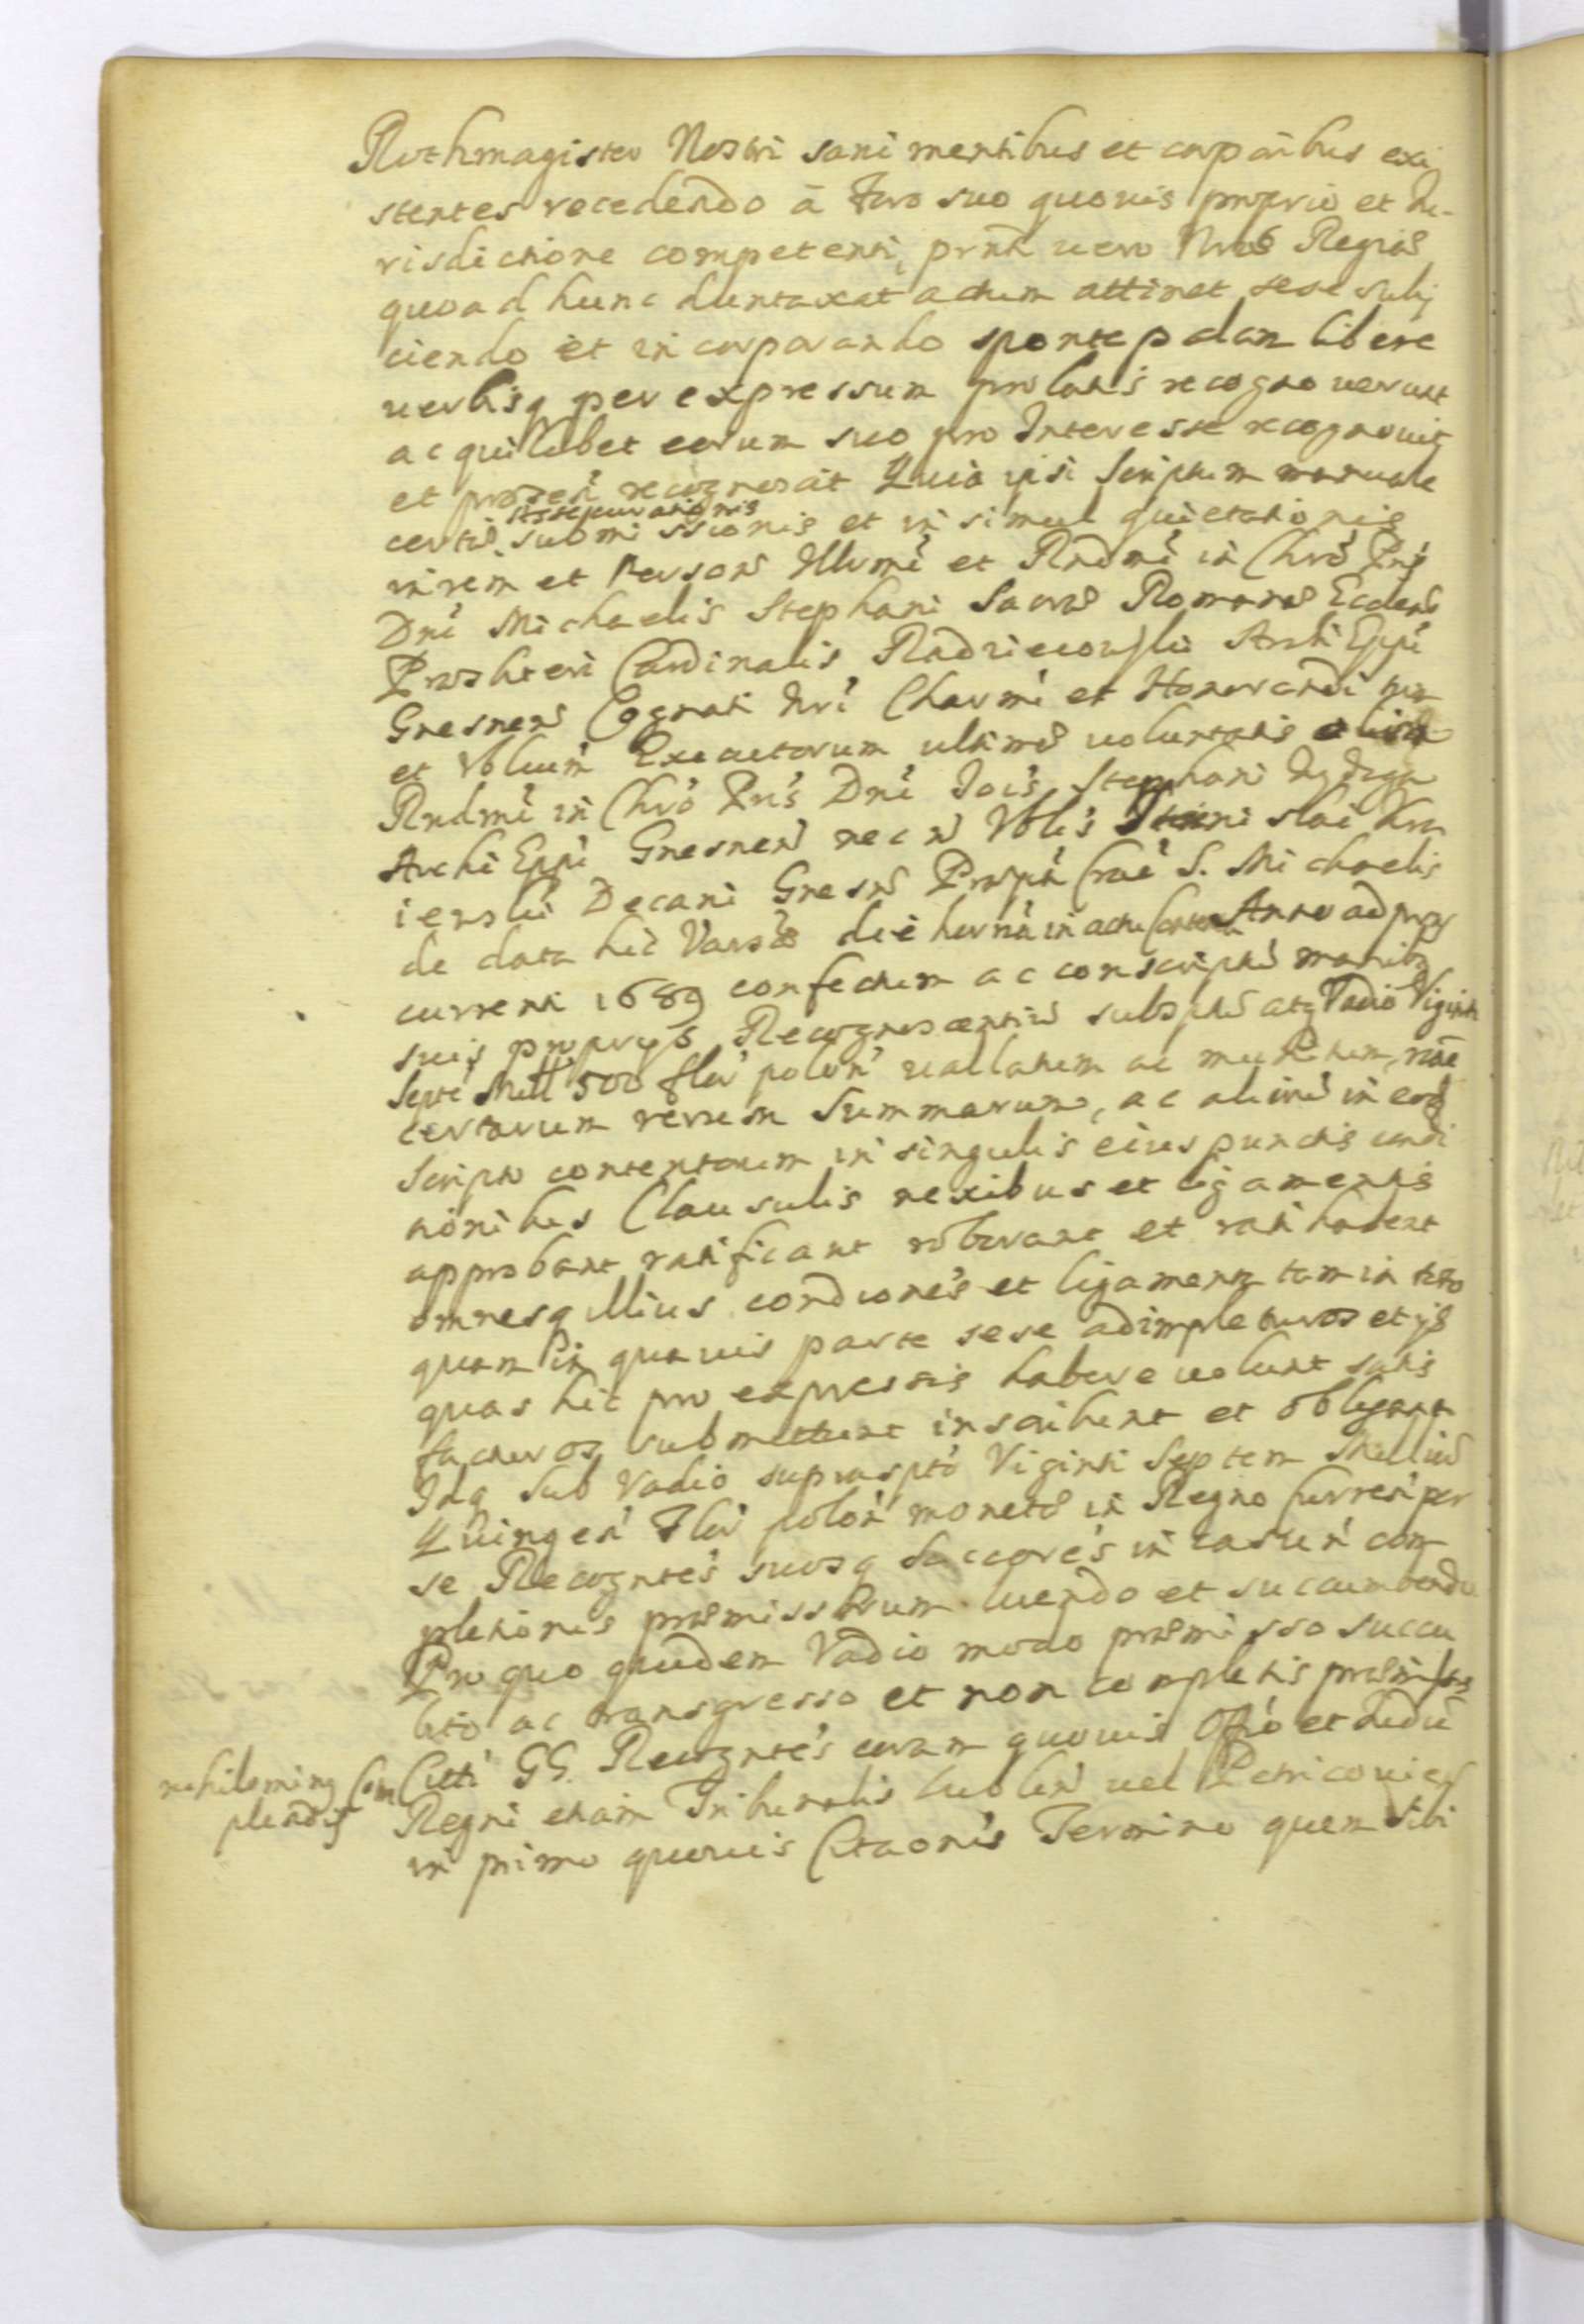 Rothmagister Nostri sani mentibus et corporibus exi
stentes recedendo à Foro suo quouis proprio et Iu-
risdictione competenti, prnti uero Nrae Regiae
quoad hunc duntaxat actum attinet sese subij
ciendo et incorporando sponte palam libere
uerbisq per expressum prolatis recognouerunt
ac quilibet eorum suo pro Interesse recognouit
et praesen recognoscit Quia ipsi scriptum manuale
Assecurationis
certae submissionis et in simul quietationis
in rem et Person Illrmi et Rndmi in Chro Pris
Dni Michaelis Stephani Sacrae Romanae Eccleae
Praesbteri Cardinalis Radzieiowski Archi Eppi
Gnesnen Cognati Nri Charmi et Honorandi
et Executorum ultimae uoluntatis olim
Rndmi in Chro Pris Dni Iois Stephani Wydzga
Archi Eppi Gnesnen nec n Vblis Stanislai Kra
iewski Decani Gnesn Praepti S. Michaelis
de data hic Varsae die hernа in actu Anno ad praes
currenti 1689 confectum ac conscriptu manibq
suis proprijs Recognoscentiu subscptu atq Vadio Viginti
Septe Mill 500 flor polon uallatum ac munitum, rae
certarum rerum Summarum, ac alioru in eod
scripto contentorum in singulis eius punctis condi
nōnibus Clausulis nexibus et ligamentis
approbant ratificant roborant et ratihabent
omnesq illius condiones et ligamenta tam in toto
quam in quauis parte sese adimpleturos et ijs
quas hic pro expressis habere uolunt satis
facturos submittunt inscribunt et obligant
Idq sub Vadio suprascpto Viginti Septem Milliu
Quingen Flor polon monetae in Regno Curren per
se Recogntes suosq Saccores in casu n com
pletionis praemissorum luendo et succumbendo
Pro quo quidem Vadio modo praemisso succu
bito ac transgresso et non completis praemissis
nihilominq Com
plendis
Citti GG. Recogntes coram quouis Offio et Iudu
Regni etiam Tribunalis Lublin uel Petricouien
in primo quouis Citaonis Termino quem sibi